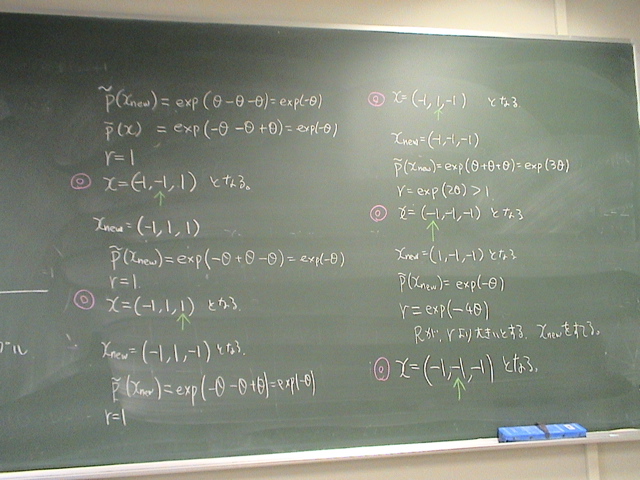 p̃(xnew) = exp(θ-θ-θ) = exp(-θ)
p̃(x) = exp(-θ-θ+θ) = exp(-θ)
r=1
◎ x=(-1,-1,1) となる。
xnew=(-1,1,1)
p̃(xnew)=exp(-θ+θ-θ)=exp(-θ)
r=1
◎ x=(-1,1,1) となる.
xnew=(-1,1,-1) となる.
p̃(xnew)=exp(-θ-θ+θ)=exp(-θ)
r=1
ル
◎ x=(-1,1,-1) となる
xnew=(-1,-1,-1)
p̃(xnew)=exp(θ+θ+θ)=exp(3θ)
r=exp(2θ)>1
◎ x=(-1,-1,-1) となる
xnew=(1,-1,-1) となる
p̃(xnew)=exp(-θ)
r=exp(-4θ)
Rが、rより大きいとする. xnewをすてる.
◎ x=(-1,-1,-1) となる.